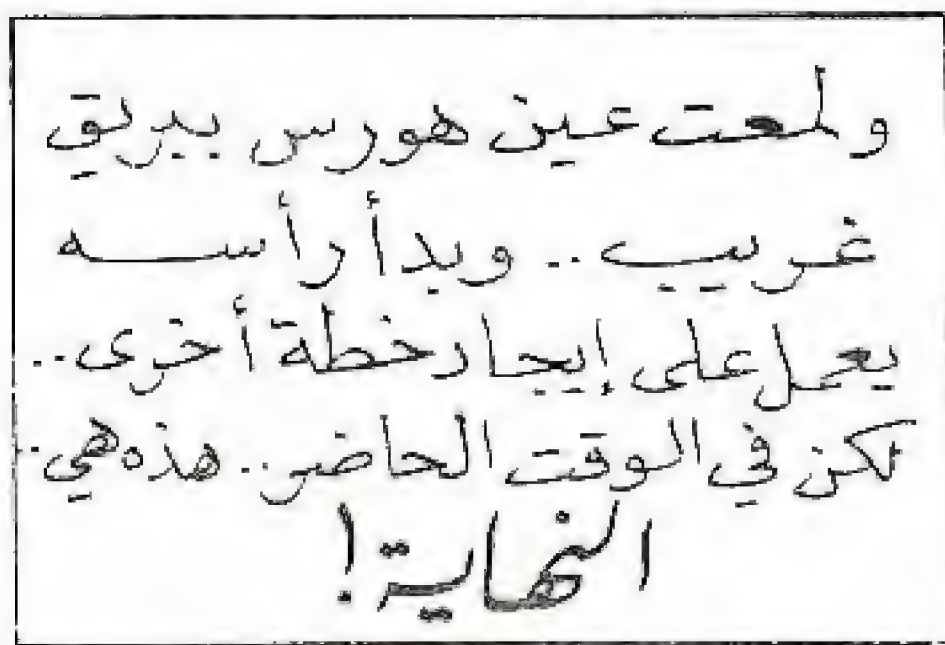 ولمعت عين هورس ببريق
غريب .. وبدأ رأسه
يعمل على إيجاد خطة أخرى ..
لكن في الوقت الحاضر .. هذه هي ..
النهاية !